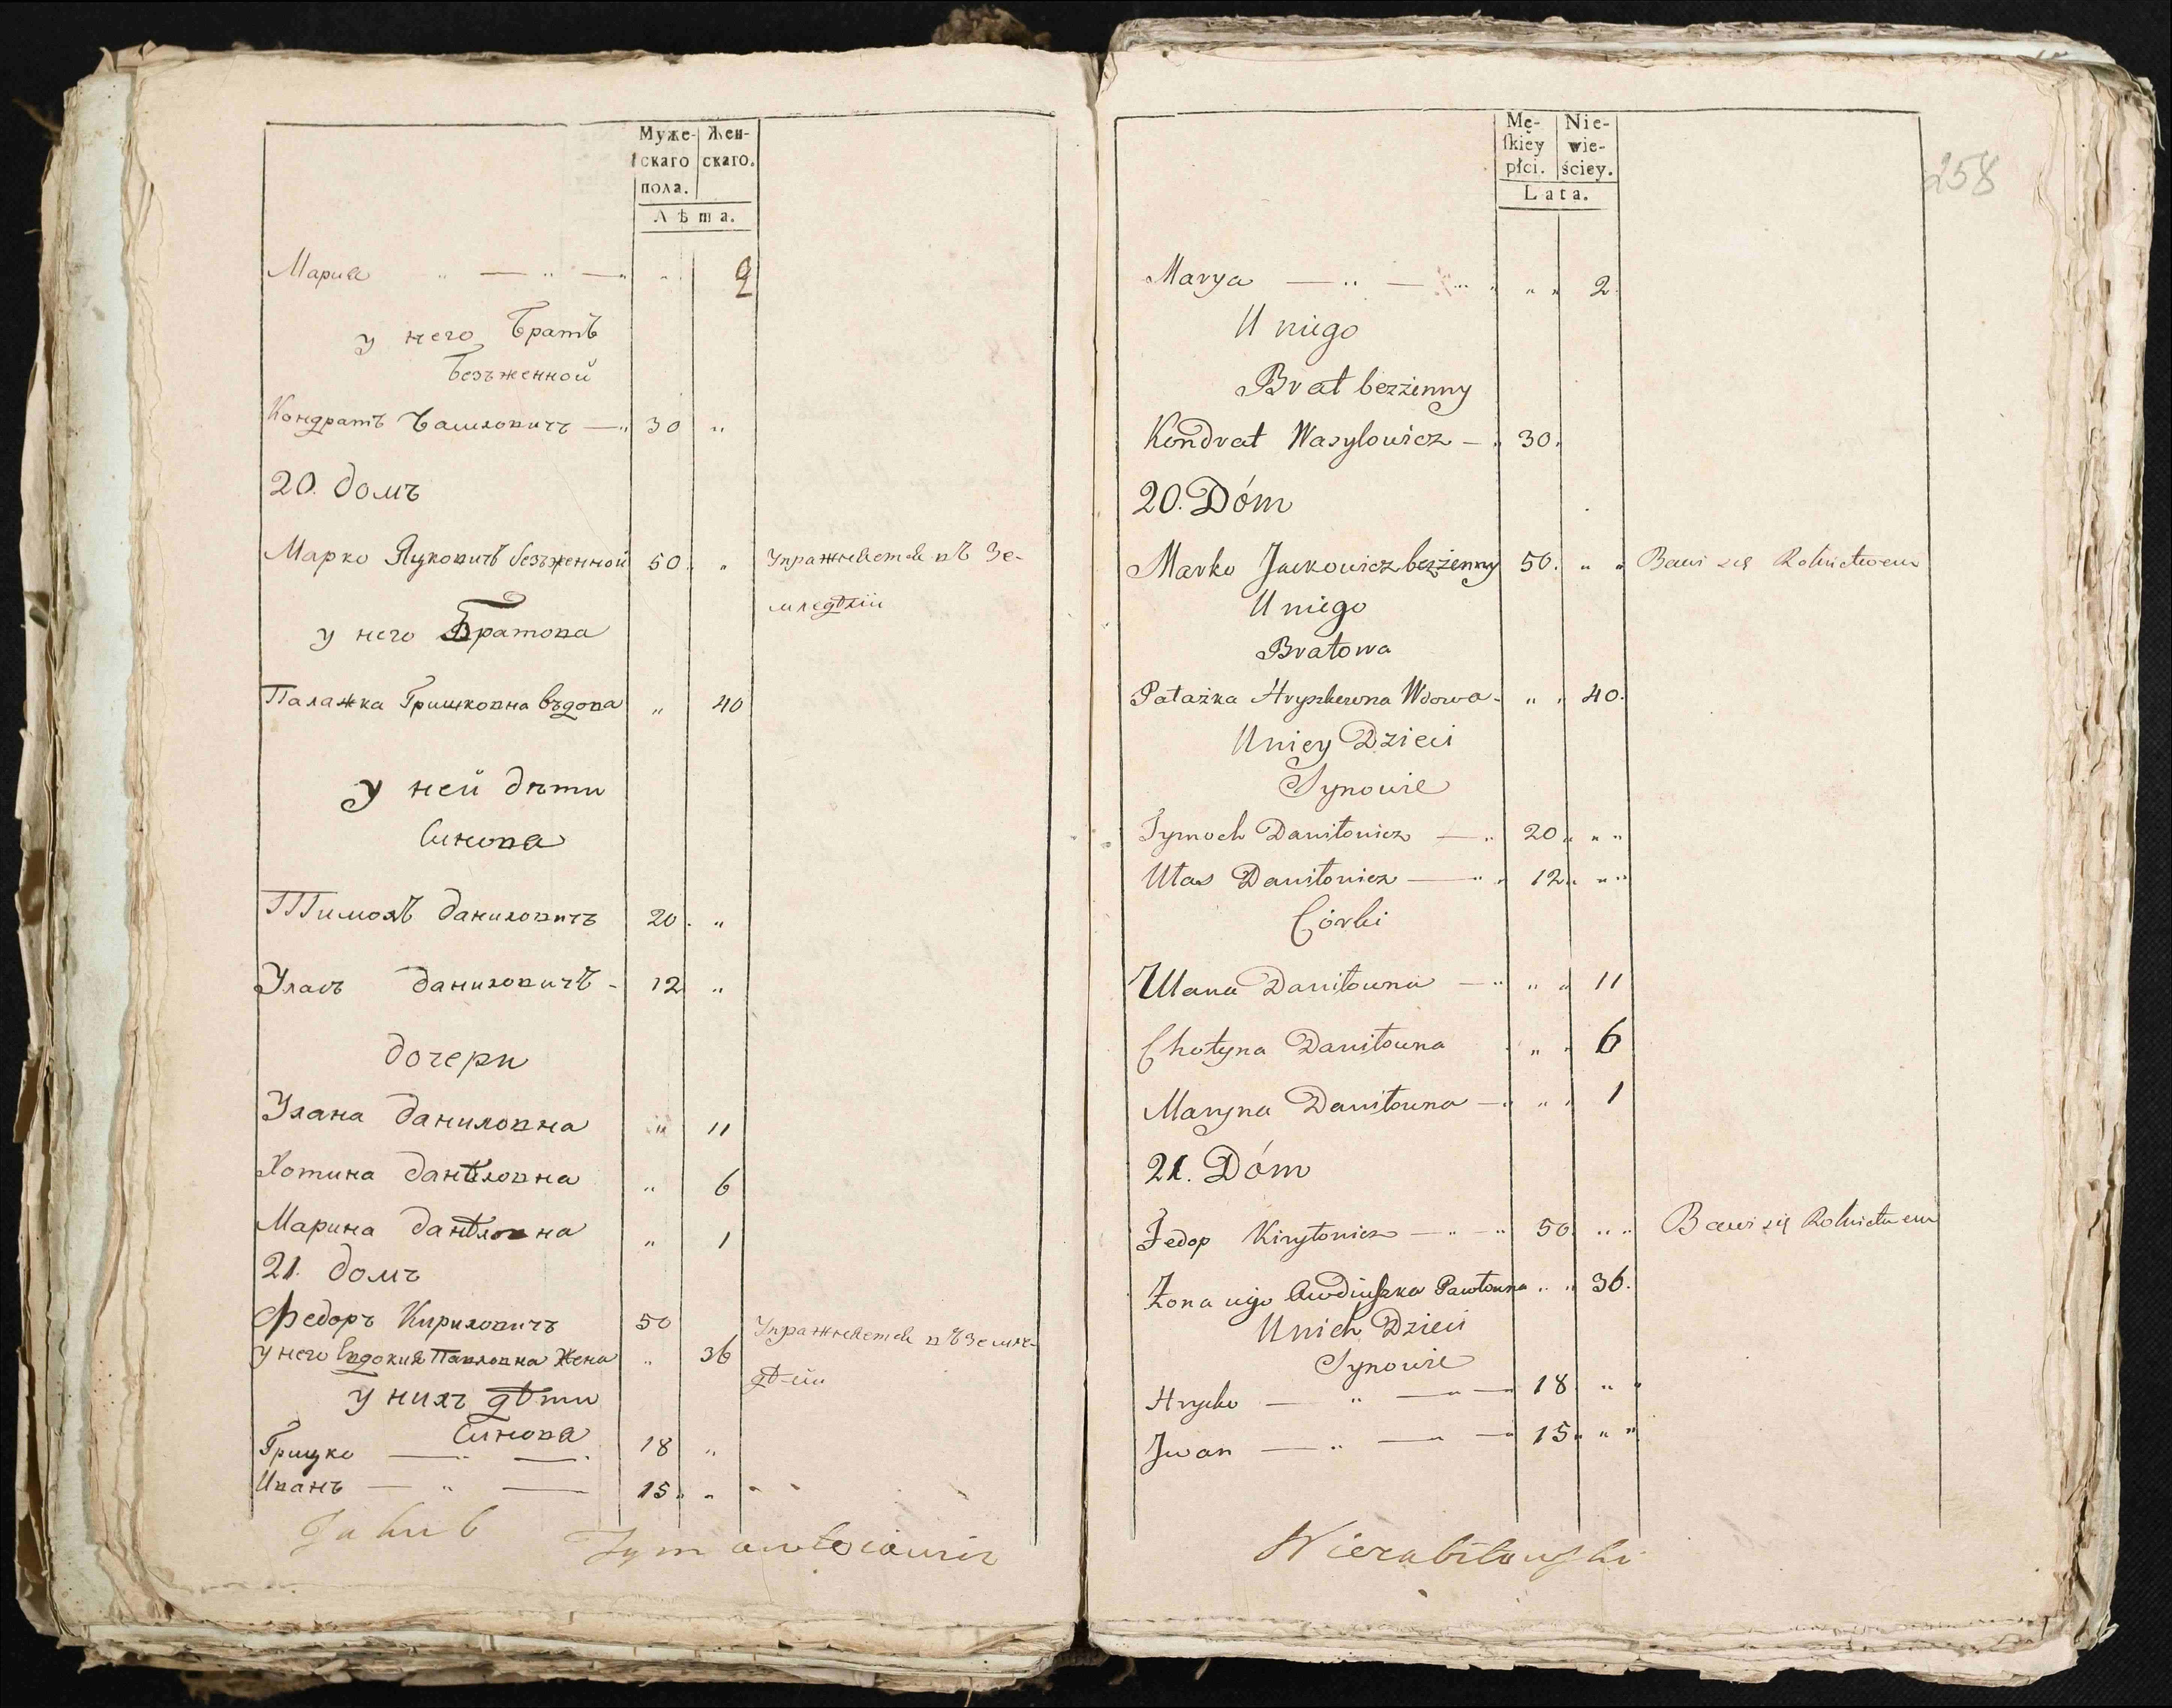 Муже- Жен-
скаго скаго.
пола.
Лѣта.
Мария 2
у него Братъ
Безъженной
Кондратъ Василовичъ 30
20. домъ
Марко Яцковичъ безъженной 50. Упражняется въ Зе-
мледѣліи
у него Братова
Палажка Гришковна въдова 40
у ней дѣти
Синова
Тимохъ даниловичъ 20.
Уласъ даниловичъ - 12
дочери
Улана даниловна 11
Хотина даниловна 6
Марина даниловна 1
21. домъ
Федоръ Кириловичъ 50 Упражняется въЗемле-
у него Евдокия Павловна Жена 36
дѣліи
у нихъ дѣти
Синова
Грицко 18
Иванъ 15
Jakub Szymanowicz
Mę- Nie-
ſkiey wie-
płci. ściey.
Lata.
258
Marya 2.
U niego
Brat bezżenny
Kondrat Wasylowicz 30.
20. Dóm
Marko Jackowicz bezżenny 50. Bawi się Rolnictwem
U niego
Bratowa
Pałażka Hryszkowna Wdowa 40.
U niey Dzieci
Synowie
Tymoch Daniłowicz 20
Ułas Daniłowicz 12
Córki
Ulana Daniłowna 11
Chotyna Daniłowna 6
Maryna Daniłowna 1
21. Dóm
Fedor Kiryłowicz 50. Bawi się Rolnictwem
Żona iego Awdiuszka Pawłowna 36.
U nich Dzieci
Synowie
Hrycko 18
Jwan 15